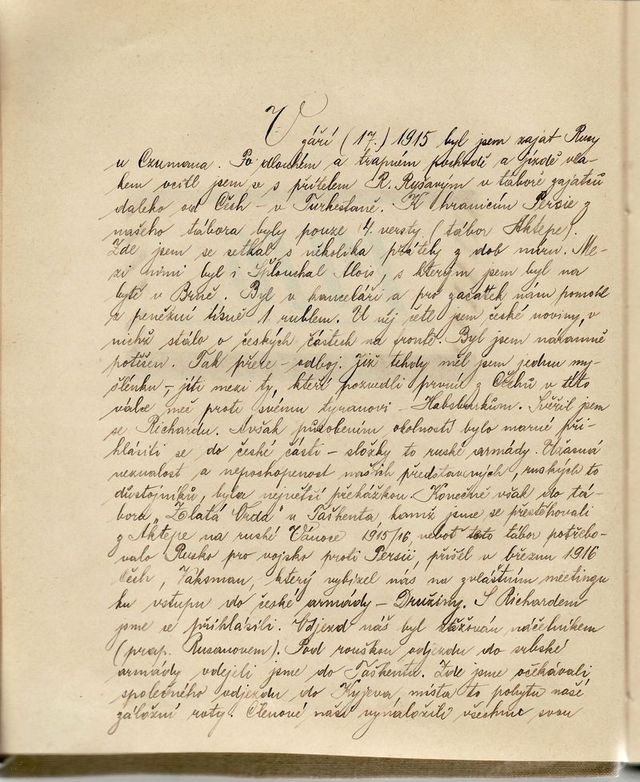 V září (17.) 1915 byl jsem zajat Rusy
u Czumana. Po dlouhém a trapném pochodě a jízdě vla-
kem ocitl jsem se s přítelem R. Ryšavým v táboře zajatců
daleko od Čech - v Turkestaně. K hranicím Persie z
našeho tábora byly pouze 4 versty (tábor Aktepe).
Zde jsem se setkal s několika přátely z dob míru. Me-
zi nimi byl i Šplouchal Alois, s kterým jsem byl na
bytě v Brně. Byl v kanceláři a pro začátek nám pomohl
z peněžní tísně 1 rublem. U něj četl jsem české noviny, v
nichž stálo o českých částech na frontě. Byl jsem náramně
potěšen. Tak přece - odboj. Již tehdy měl jsem jednu my-
šlénku, - jíti mezi ty, kteří pozvedli první z Čechů v této
válce meč proti svému tyranovi - Habsburkům. Svěřil jsem
se Richardu. Avšak působením okolností bylo marné při-
hlásiti se do české části - složky to ruské armády. Úžasná
neznalost a nepochopenost našich představených, ruských to
důstojníků, byla největší překážkou. Konečně však do tá-
bora „Zlatá Orda" u Taškenta kamž jsme se přestěhovali
z Aktepe na ruské Vánoce 1915/16, neboť tento tábor potřebo-
valo Rusko pro vojsko proti Persii, přišel v březnu 1916
Čech, Vaksman, který vybízel nás na zvláštním meetingu
ku vstupu do české armády - Družiny. S Richardem
jsme se přihlásili. Odjezd náš byl ztěžován náčelníkem
(prap. Rusanovem). Pod rouškou odjezdu do srbské
armády odejeli jsme do Taškentu. Zde jsme očekávali
společného odjezdu do Kyjeva místa to pobytu naší
záložní roty. Členové naši vynaložili všechnu svou